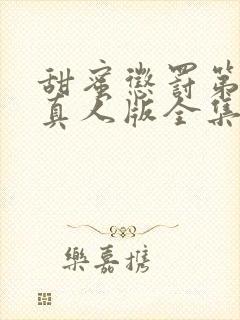 甜蜜懲罰第
真人版全集
樂嘉攜